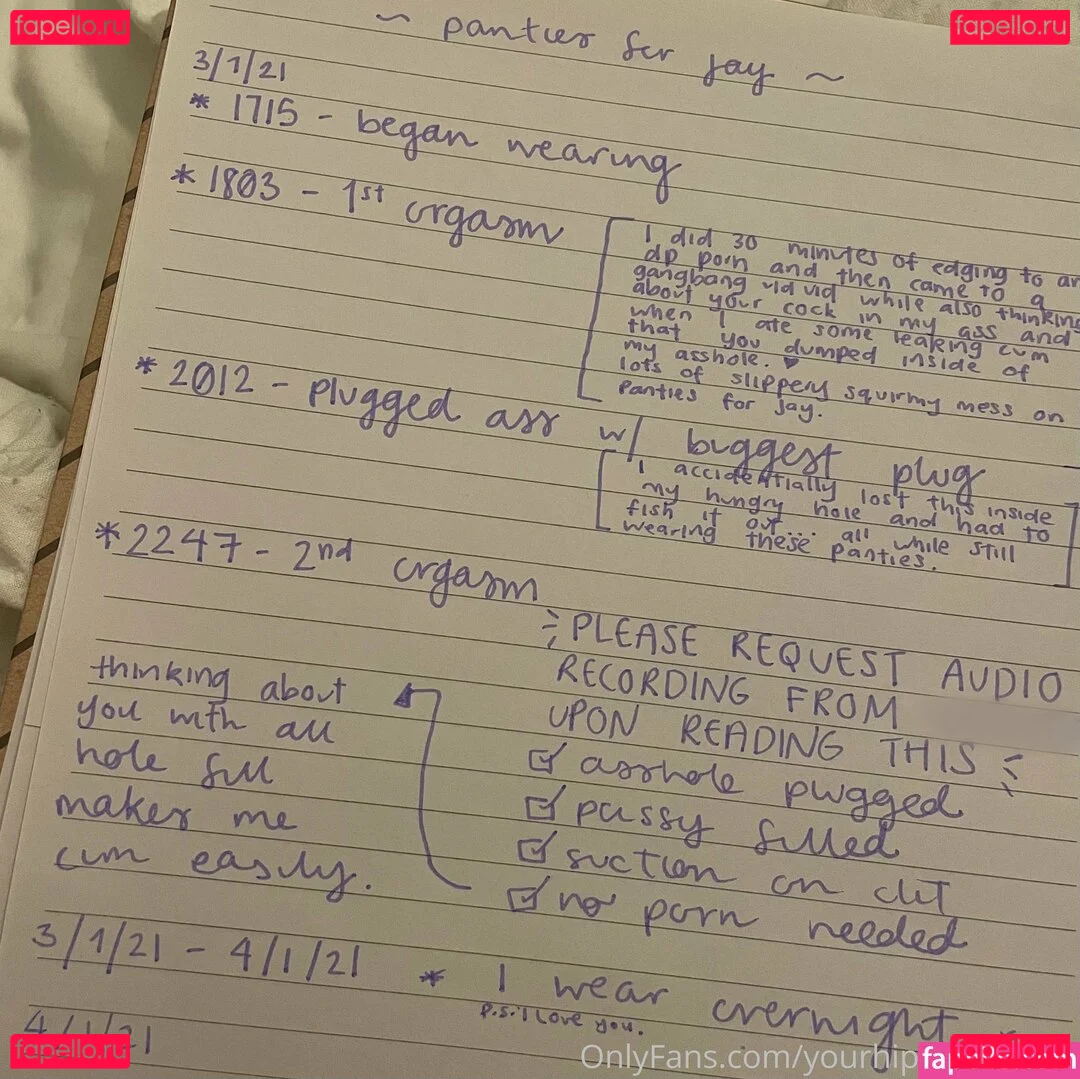 fapello.ru
fapello.ru
~ panties for jay ~
3/1/21
* 1715 - began wearing
* 1803 - 1st orgasm
I did 30 minutes of edging to an
dp porn and then came to a
gangbang vid vid while also thinking
about your cock in my ass and
when I ate some leaking cum
that you dumped inside of
my asshole. ♥
lots of slippery squirmy mess on
panties for jay.
* 2012 - plugged ass w/ biggest plug
I accidentially lost this inside
my hungry hole and had to
fish it out... all while still
wearing these panties.
* 2247 - 2nd orgasm
PLEASE REQUEST AUDIO
RECORDING FROM
UPON READING THIS
☑ asshole plugged
☑ pussy filled
☑ suction on clit
☑ no porn needed
thinking about
you with all
hole full
makes me
cum easily.
3/1/21 - 4/1/21
* I wear overnight
p.s. I love you.
4/1/21
fapello.ru
OnlyFans.com/yourhip
fapello.ru